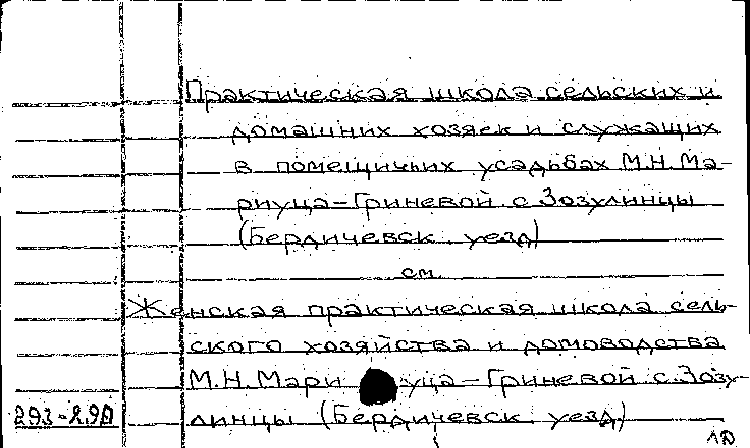 Практическая школа сельских и
домашних хозяек и служащих
в помещичьих усадьбах М.Н. Ма-
риуца-Гриневой с Зозулинцы
(Бердичевск. уезд)
см.
Женская практическая школа сель-
ского хозяйства и домоводства
М.Н. Мариуца-Гриневой с. Зозу-
линцы (Бердичевск уезд)